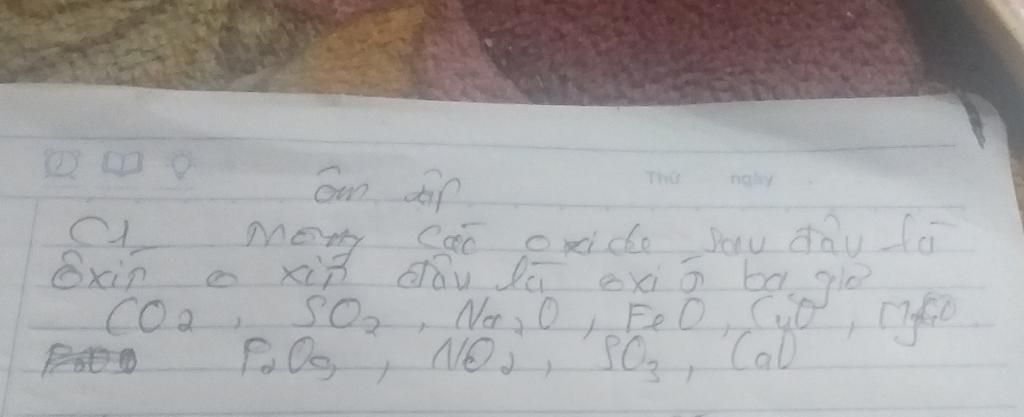 Thứ ngày
Ôn tập
C1 các oxide sau đâu là
đâu là oxi ba giơ
CO2, SO2, Na2O, FeO, CuO, MgO
P2O5, NO2, SO3, CaO